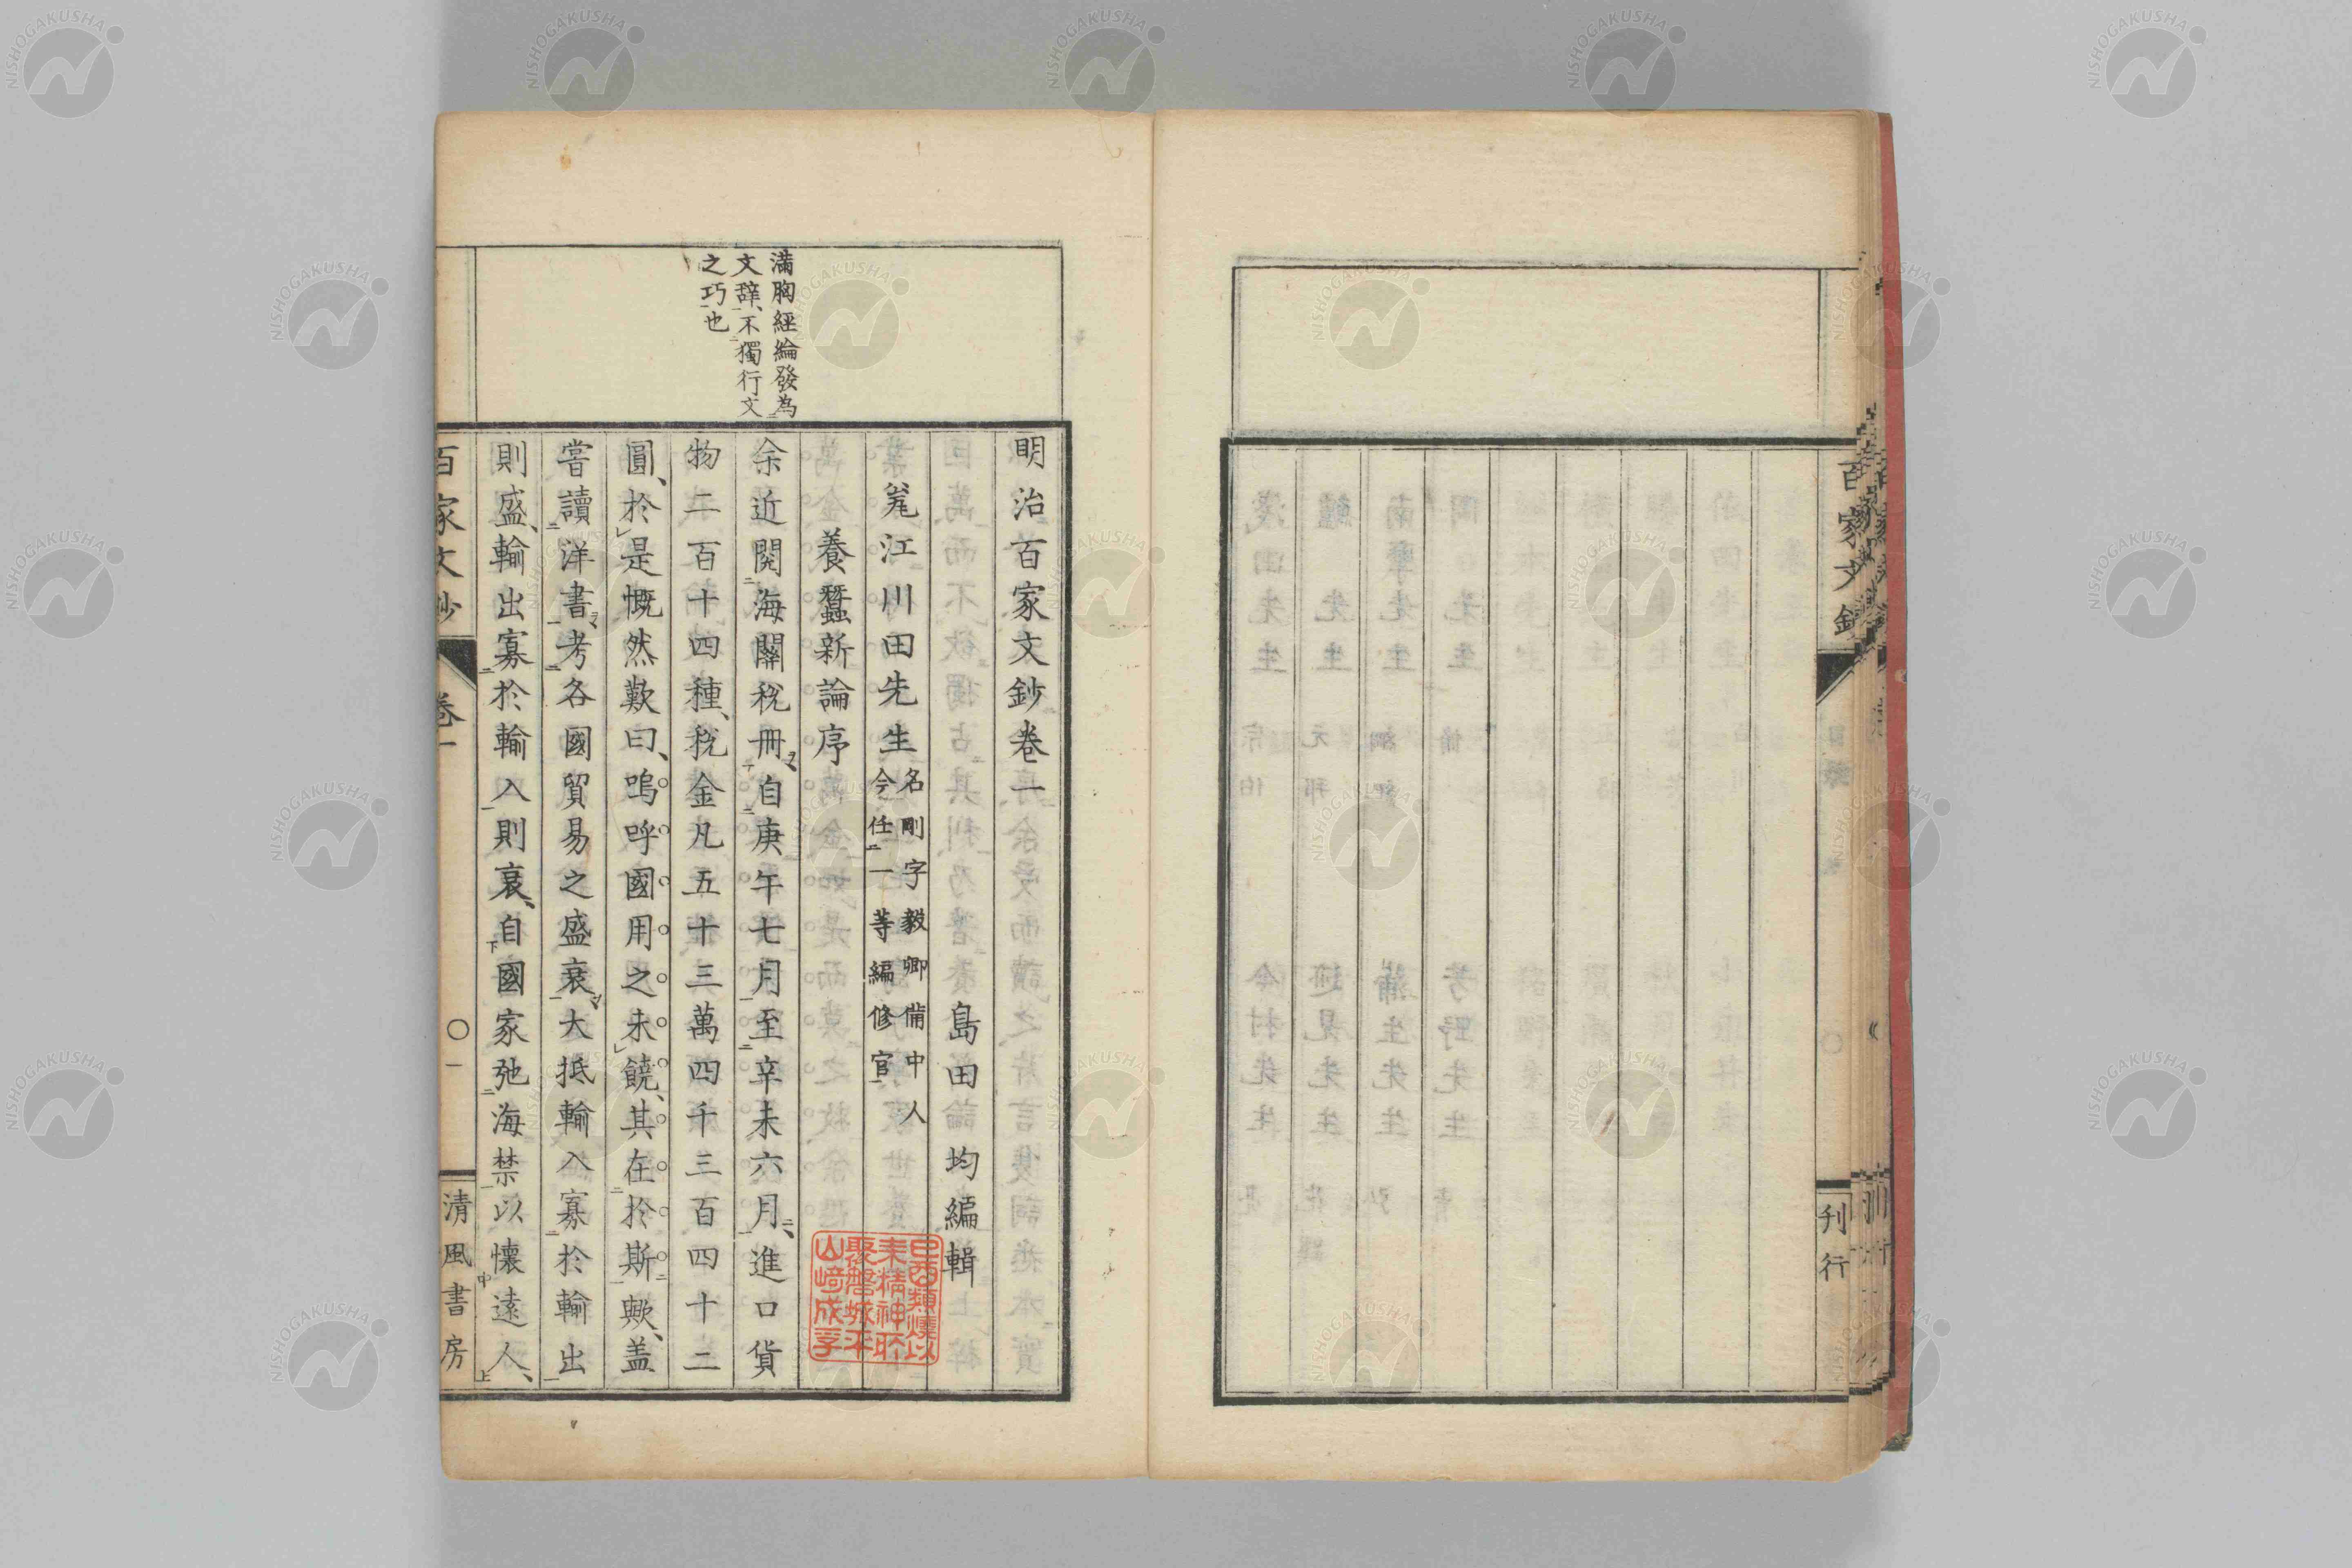 百家文鈔
刊行
明治百家文鈔卷一
島田均編輯
甕江川田先生
名剛字毅卿備中人
今任二一等編修官一
養蠶新論序
余近閱二海關税冊ヲ、自下庚午七月一至二辛未六月上、進口貨
物二百十四種、税金凡五十三萬四千三百四十二
圓、於レ是慨然歎曰、嗚呼國用之未レ饒、其在二於斯一歟、盖
嘗讀二洋書ヲ一考二各國貿易之盛衰ヲ一大抵輸入寡二於輸出一
則盛、輸出寡二於輸入一則衰、自下國家弛二海禁一以懷中遠人上、
滿胸經綸發為二
文辭一、不二獨行文
之巧一也
百家文鈔
卷一
〇一
清風書房
山﨑成孚
NISHOGAKUSHA